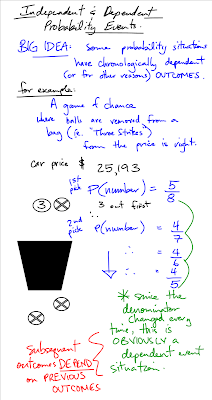 Independent & Dependent
Probability Events.
BIG IDEA: some probability situations
have chronologically dependent
(or for other reasons) OUTCOMES.
for example:
A game of chance
where balls are removed from a
bag (ie. "Three Strikes")
from the price is right.
car price $ 25,193
1st pick P(number) = 5/8
3 X 3 out first
2nd pick P(number) = 4/7
∴ = 4/6
↓ ∴ = 4/5
X X
* since the
denominator
changed every
time, this is
OBVIOUSLY a
dependent event
situation.
Subsequent
outcomes DEPEND
on PREVIOUS
OUTCOMES